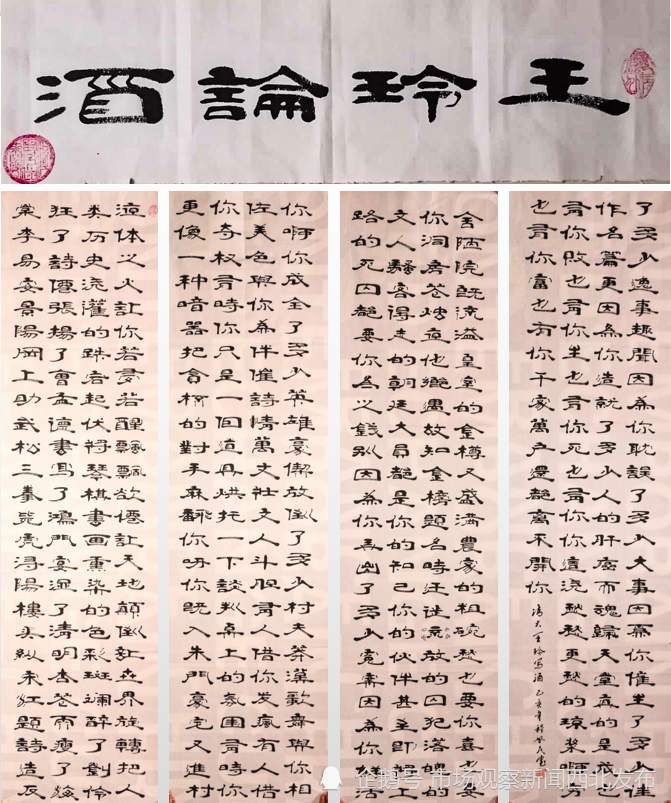 王玲論酒
液体之火让你若夢若醒飄飄欲僊让天地顛倒让世界旋轉把人
类历史流灌的跌宕起伏将琴棋書画熏染的色彩斑斓醉了劉伶
狂了詩僊張揚了曹孟德書写了鴻門宴湿了清明杏花雨瘦了海
棠李易安景陽岡上助武松三拳斃虎潯陽樓头纵宋江題詩造反
你啊你成全了多少英雄豪傑放倒了多少村夫莽漢歌舞與你相
佐美色與你為伴催詩情萬丈壯文人斗胆有人借你发瘋有人借
你夺权有時你只是一個道具烘托一下談判桌上的氛围有時你
更像一种暗器把貪杯的對手麻翻你呀你既入朱門豪宅又進村
舍陋院既流溢皇室的金樽又盛满農家的粗碗愁也要你喜也要
你洞房花烛夜他鄉遇故知金榜題名時狂放的囚犯落魄的
文人騷客得志的朝廷大員都是你的知己你的伙伴甚至即將上
路的死囚都要你為之餞别因為你出了多少冤案因為你鮮活
了多少逸事趣聞因為你耽誤了多少大事因為你催生了多少佳
作名篇更因為你造就了多少人的肝而魂歸天堂真的是成也
有你敗也有你生也有你死也有你你這澆愁愁更愁的琼浆啊
也有你富也有你千家萬户還都离不開你
王玲写酒己亥年
企鹅号 市场观察新闻西北发布